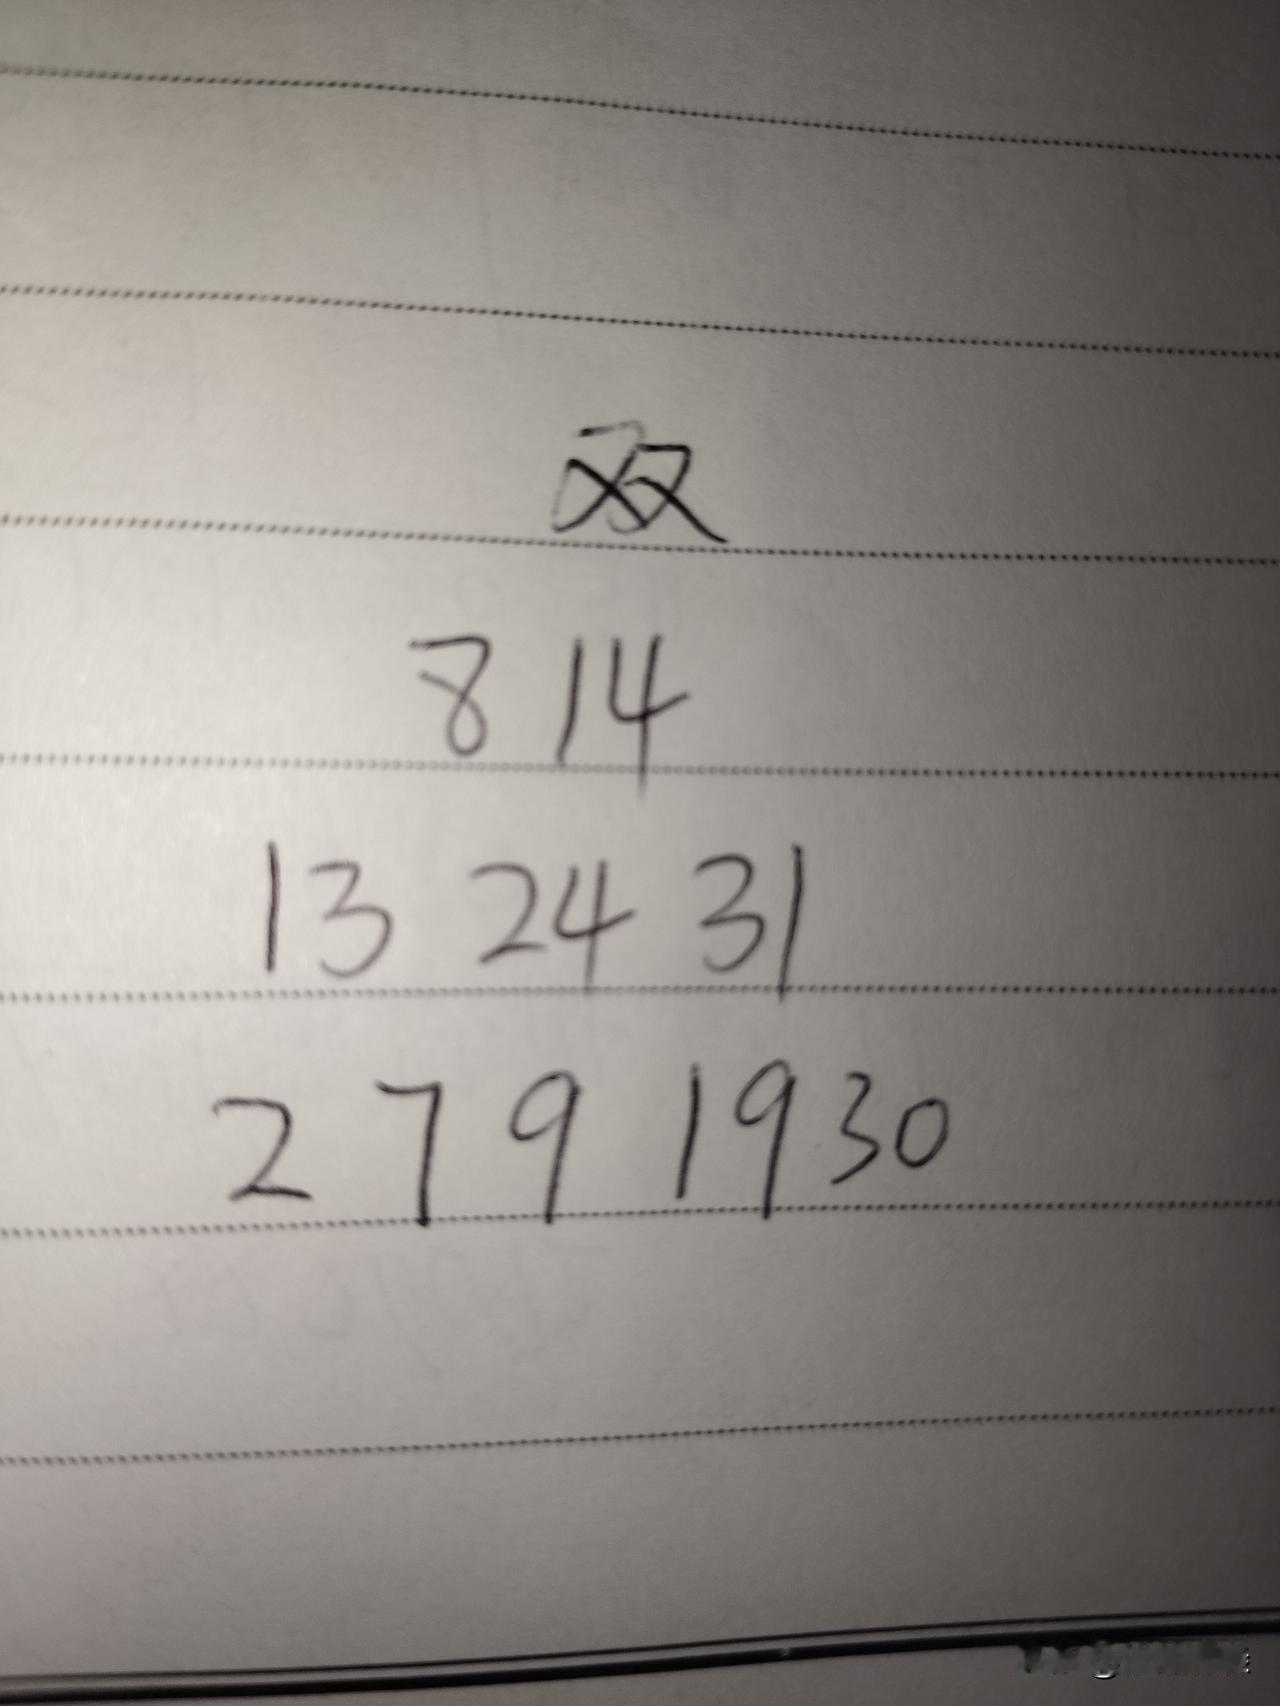 双
8 14
13 24 31
2 7 9 19 30